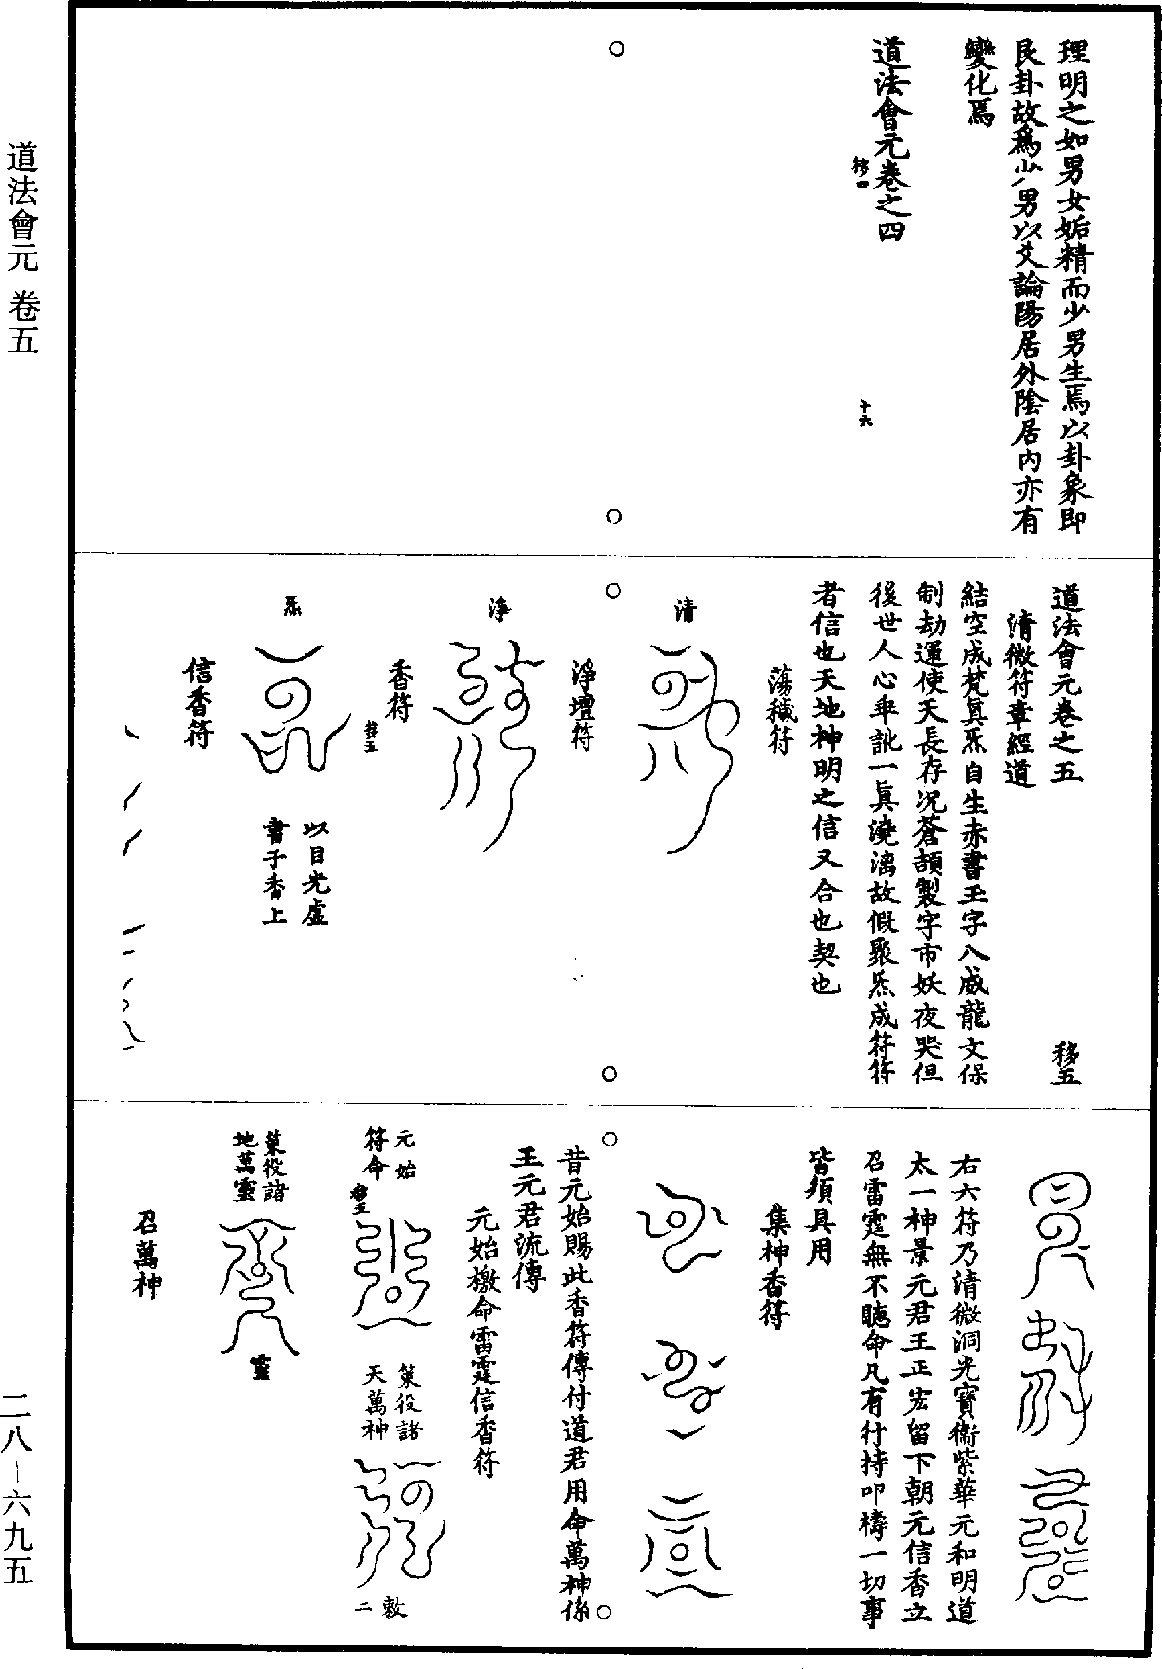 理明之如男女姤精而少男生焉以卦象即
艮卦故爲少男以爻論陽居外陰居內亦有
變化焉
道法會元卷之四
移四
十六
道法會元卷之五
移五
清微符章經道
結空成梵真炁自生赤書玉字八威龍文保
制劫運使天長存況蒼頡製字市妖夜哭但
後世人心乖訛一真澆漓故假聚炁成符符
者信也天地神明之信又合也契也
蕩穢符
清
淨壇符
淨
移五
香符
炁
以目光虛
書于香上
信香符
右六符乃清微洞光寶衞紫華元和明道
太一神景元君王正宏留下朝元信香立
召雷霆無不聽命凡有行持叩禱一切事
皆須具用
集神香符
昔元始賜此香符傳付道君用命萬神係
王元君流傳
元始檄命雷霆信香符
元始
符命
移五
策役諸
天萬神
敕
二
策役諸
地萬靈
靈
召萬神
道法會元 卷五
二八-六九五